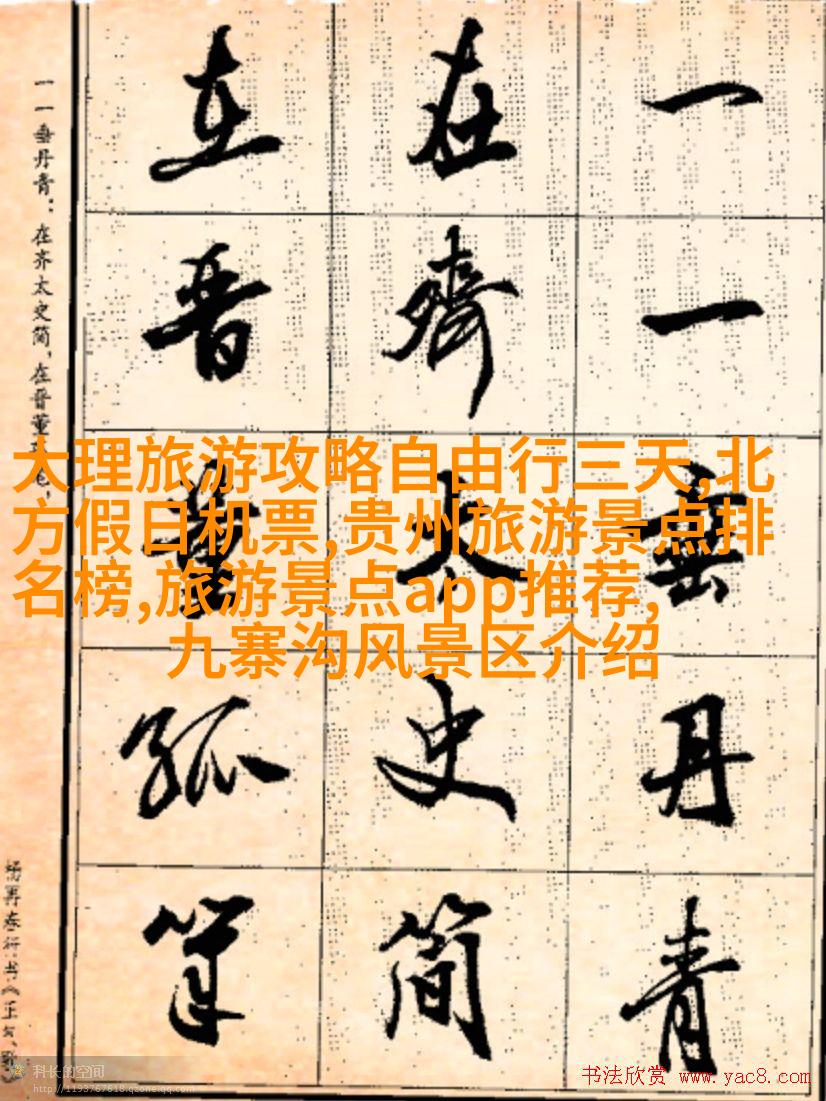 一一垂丹青
在齐太史简
在晋董狐笔
一一垂丹青：在齐太史简，在晋董狐笔，
大理旅游攻略自由行三天,北
方假日机票,贵州旅游景点排
名榜,旅游景点app推荐,
九寨沟风景区介绍
科长的空间
http://1193767618.qzone.qq.com
书法欣赏 www.yac8.com